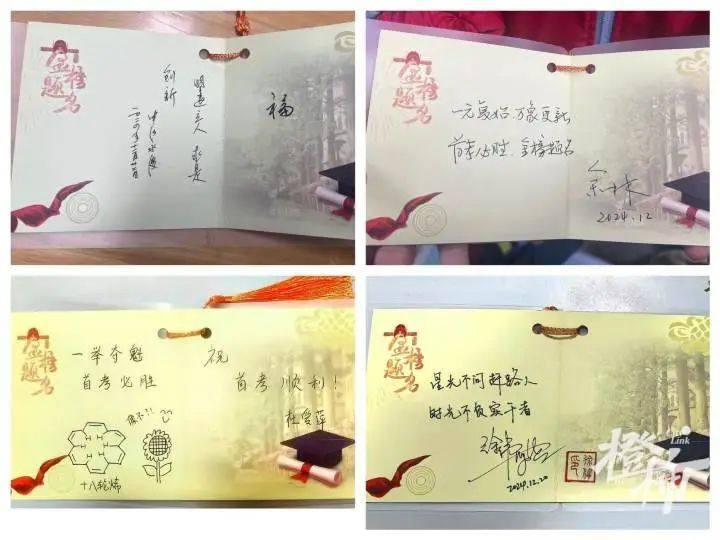 金榜题名
福
明道立人 求是
创新
二〇二四年十二月廿一日
金榜题名
一元复始 万象更新
首考必胜 金榜题名
2024.12
金榜题名
一举夺魁
首考必胜
祝
首考顺利!
杜雯萍
像不?!
十八轮烯
金榜题名
星光不问赶路人
时光不负实干者
2024.12.20
橙柿
Link